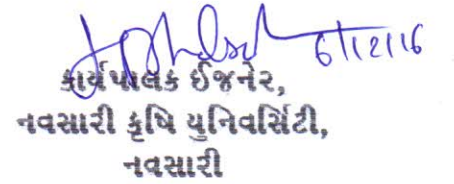 6/12/16
કાર્યપાલક ઈજનેર,
નવસારી કૃષિ યુનિવર્સિટી,
નવસારી